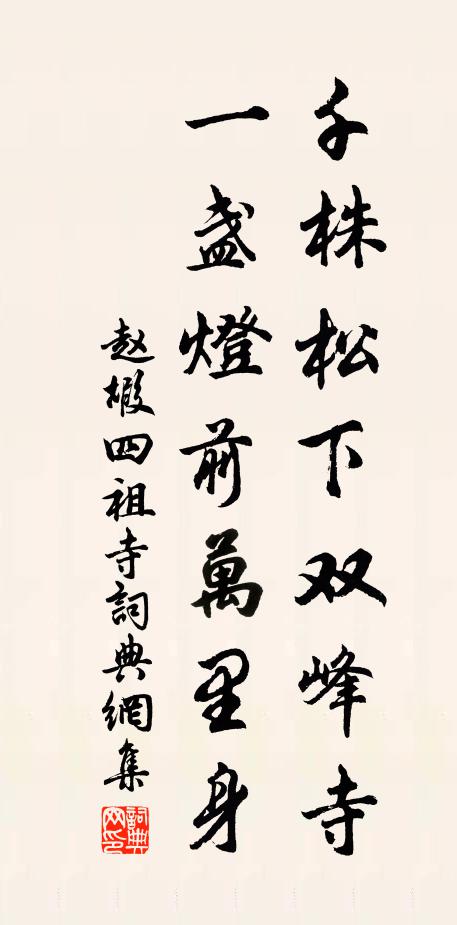 千株松下双峰寺
一盏燈前萬里身
赵嘏四祖寺詞典網集
詞典网印